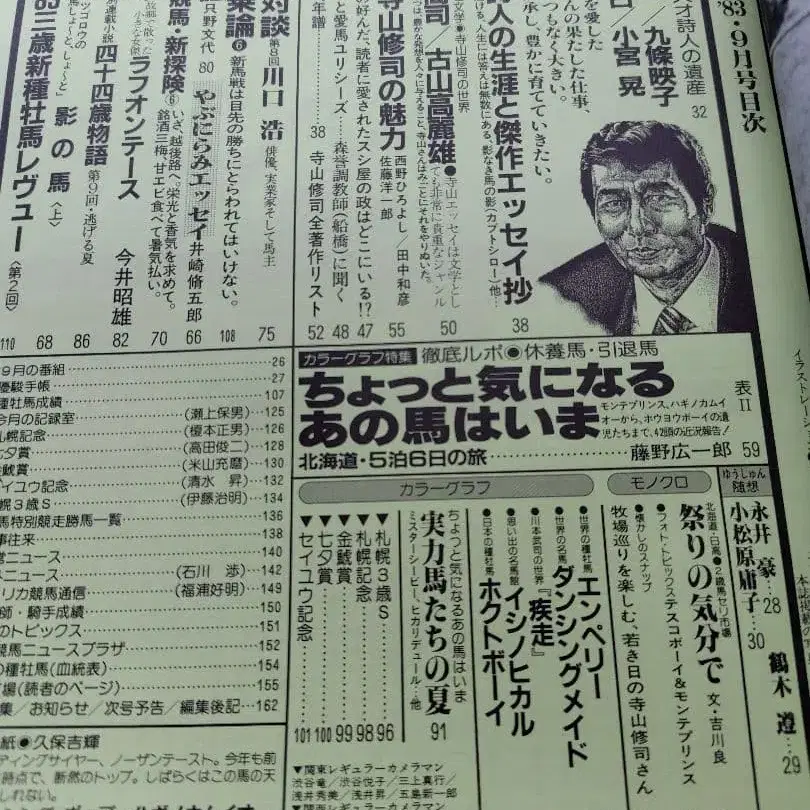 '83・9月号目次
オ詩人の遺産
九條映子
小宮 晃
32
を愛した
んの果たした仕事、
つもなく大きい。
承し、豊かに育てていきたい。
人の生涯と傑作エッセイ抄
ける。人生には答えは無数にある。影なき馬の影(カブトシロー)他…
38
文学●寺山修司の世界
司/古山高麗雄
●寺山エッセイは文学とし
ても非常に貴重なジャンル
50
寺山修司の魅力
西野ひろよし/田中和彦
佐藤洋一郎
55
の好んだ、読者に愛されたスシ屋の政はどこにいる!?
47
と愛馬ユリシーズ……森誉調教師(船橋)に聞く
48
年譜
38
寺山修司全著作リスト
52
対談
第8回
川口 浩
俳優、実業家そして馬主
75
乗論⑥
新馬戦は目先の勝ちにとらわれてはいけない。
108
只野文代
80
やぶにらみエッセイ
井崎脩五郎
66
競馬・新探険⑥
いざ、越後路へ。栄光と香気を求めて。
銘酒三梅、甘エビ食べて暑気払い。
70
ラフオンテース
今井昭雄
82
連載小説
四十四歳物語
第9回・逃げる夏
86
影の馬〈上〉
68
83三歳新種牡馬レヴュー
〈第2回〉
110
カラーグラフ特集
徹底ルポ●休養馬・引退馬
ちょっと気になる
あの馬はいま
モンテプリンス、ハギノカムイ
オーから、ホウヨウボーイの遺
児たちまで、42頭の近況報告!
表II
北海道・5泊6日の旅
藤野広一郎 59
9月の番組 26
優駿手帳 27
種牡馬成績 107
今月の記録室 (瀬上保男) 125
札幌記念 (榎本正男) 126
七夕賞 (高田俊二) 128
金鯱賞 (米山充磨) 130
セイユウ記念 (清水 昇) 132
札幌3歳S (伊藤治明) 134
馬特別競走勝馬一覧 136
事往来 138
営ニュース 140
ニュース (石川 渉) 142
リカ競馬通信 (福浦好明) 149
師・騎手成績 150
のトピックス 151
競馬ニュースプラザ 152
の種牡馬(血統表) 154
場(読者のページ) 155
集/お知らせ/次号予告/編集後記 162
カラーグラフ
●世界の種牡馬
エンペリー
●世界の名馬
ダンシングメイド
●川本武司の世界
『疾走』
●思い出の名馬館
イシノヒカル
●日本の種牡馬
ホクトボーイ
ちょっと気になるあの馬はいま
実力馬たちの夏
ミスターシービー、ヒカリデュール…他
91
▼札幌3歳S 96
▼札幌記念 98
▼金鯱賞 99
▼七夕賞 100
▼セイユウ記念 101
モノクロ
北海道・日高●2歳馬セリ市場
祭りの気分で
文・吉川 良
●フォト・トピックス
テスコボーイ&モンテプリンス
●懐かしのスナップ
牧場巡りを楽しむ、若き日の寺山修司さん
ゆうしゅん
随想
永井 豪 28
小松原庸子 30
鶴木 遵 29
紙●久保吉輝
ディングサイヤー、ノーザンテースト。今年も前
時点で、断然のトップ。しばらくはこの馬の天
しれない。
▼関東レギュラーカメラマン
渋谷竜/渋谷悦子/三上真行/
浅井秀美/浅井昇/五島新一郎